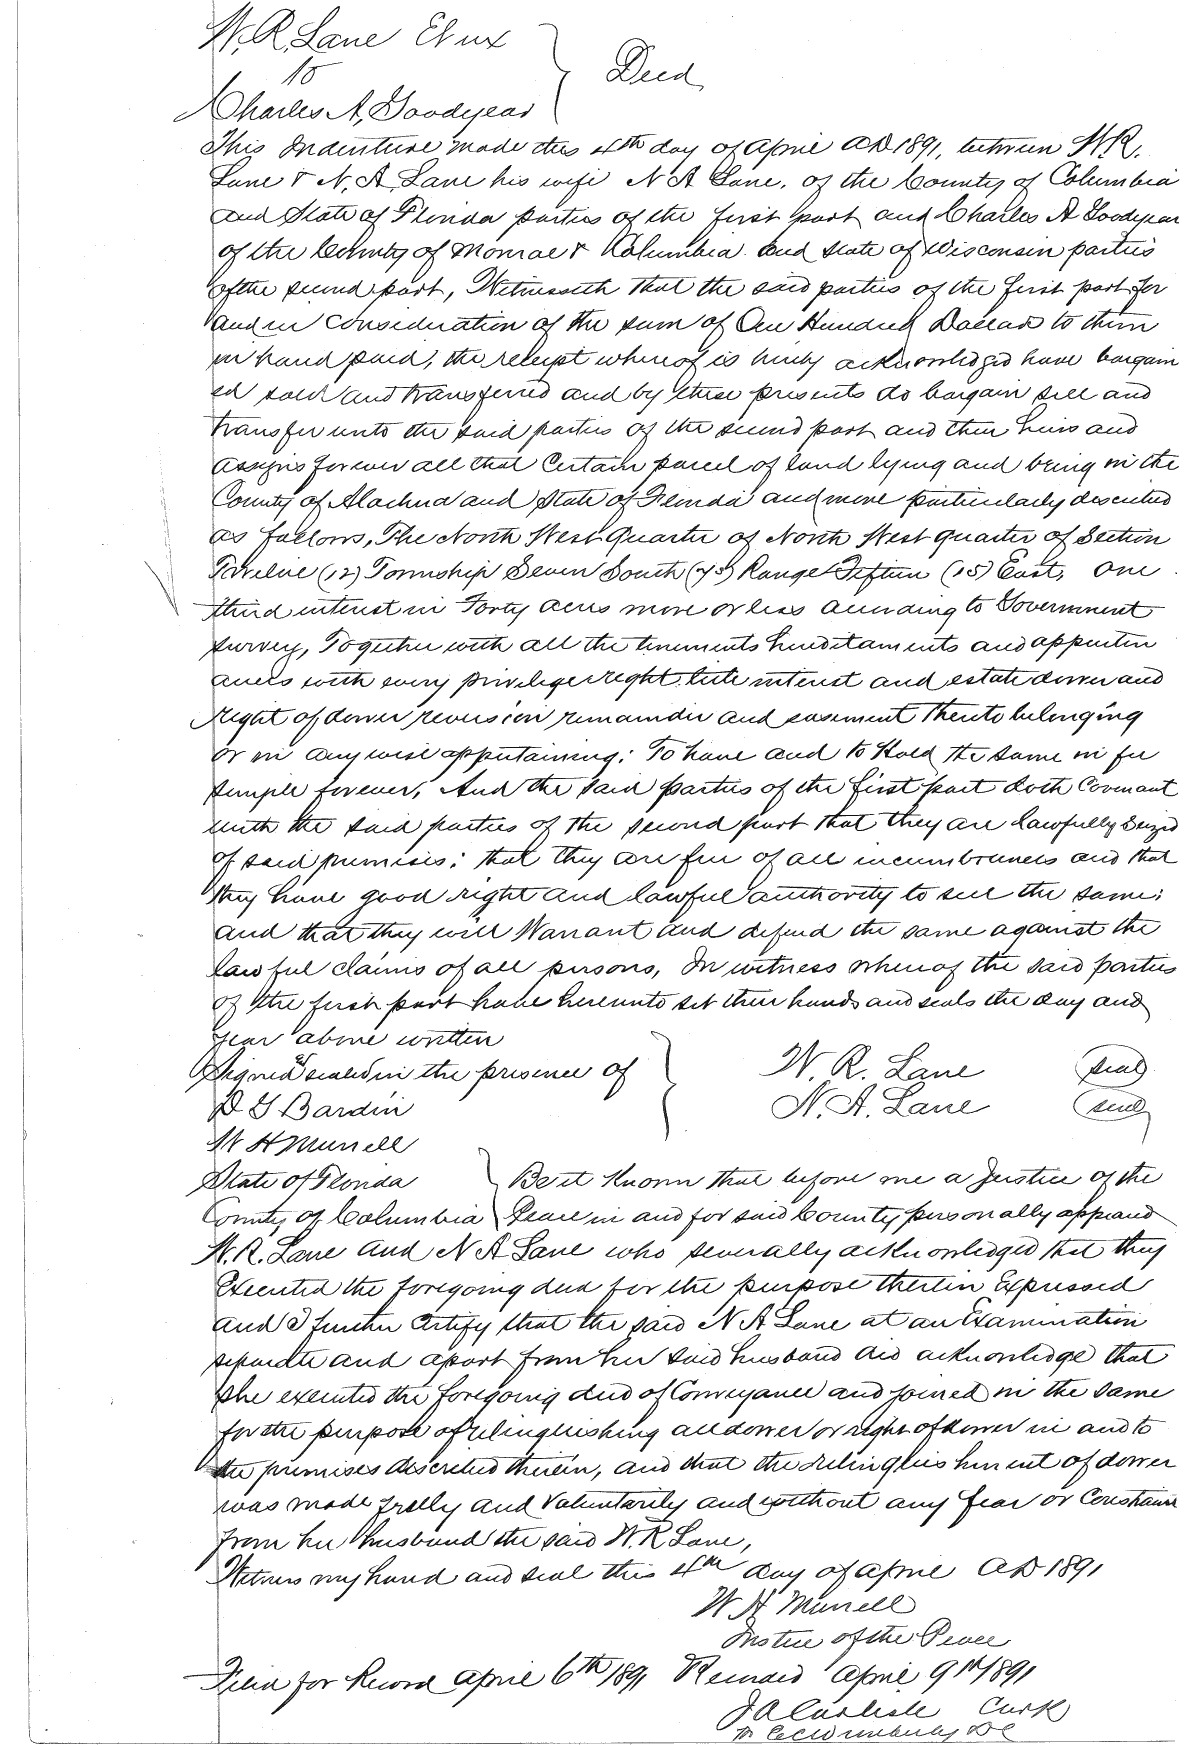 W. R. Lane Et ux
to
Deed
Charles A. Goodyear
This Indenture made this 4th day of April AD 1891, between W.R.
Lane & N. A Lane his wife N A Lane, of the County of Columbia
and State of Florida parties of the first part and Charles A Goodyear
of the County of Monroe & Columbia and State of Wisconsin parties
of the second part, Witnesseth that the said parties of the first part for
and in consideration of the sum of One Hundred Dollars to them
in hand paid, the receipt whereof is hereby acknowledged have bargain
ed sold and transferred and by these presents do bargain sell and
transfer unto the said parties of the second part and their heirs and
assigns forever all that Certain parcel of land lying and being in the
County of Alachua and State of Florida and more particularly described
as follows, The North West Quarter of North West quarter of Section
Twelve (12) Township Seven South (7S) Range Fifteen (15) East, One
third interest in Forty acres more or less according to Government
survey, Together with all the tenements hereditaments and appurten
ances with every privilege right title interest and estate dower and
right of dower reversion remainder and easement thereto belonging
or in anywise appertaining: To have and to Hold the same in fee
simple forever, And the said parties of the first part doth Covenant
with the said parties of the second part that they are lawfully Seized
of said premises; that they are free of all incumbrances and that
they have good right and lawful authority to sell the same;
and that they will Warrant and defend the same against the
lawful claims of all persons, In witness whereof the said parties
of the first part have hereunto set their hands and seals the day and
year above written
Signed & sealed in the presence of
W. R. Lane seal
D G Bardin
N. A. Lane seal
W H Murrell
State of Florida Be it Known that before me a Justice of the
County of Columbia Peace in and for said County personally appeared
W. R. Lane and N A Lane who severally acknowledged that they
Executed the foregoing deed for the purpose therein Expressed
and I further Certify that the said N A Lane at an Examination
separate and apart from her said husband did acknowledge that
she executed the foregoing deed of Conveyance and joined in the same
for the purpose of relinquishing all dower or right of dower in and to
the premises described therein, and that the relinquishment of dower
was made freely and Voluntarily and without any fear or Constraint
from her husband the said W. R Lane,
Witness my hand and seal this 4th day of April AD 1891
W H Murrell
Justice of the Peace
Filed for Record April 6th 1891 Recorded April 9th 1891
J A Carlisle Clerk
DC